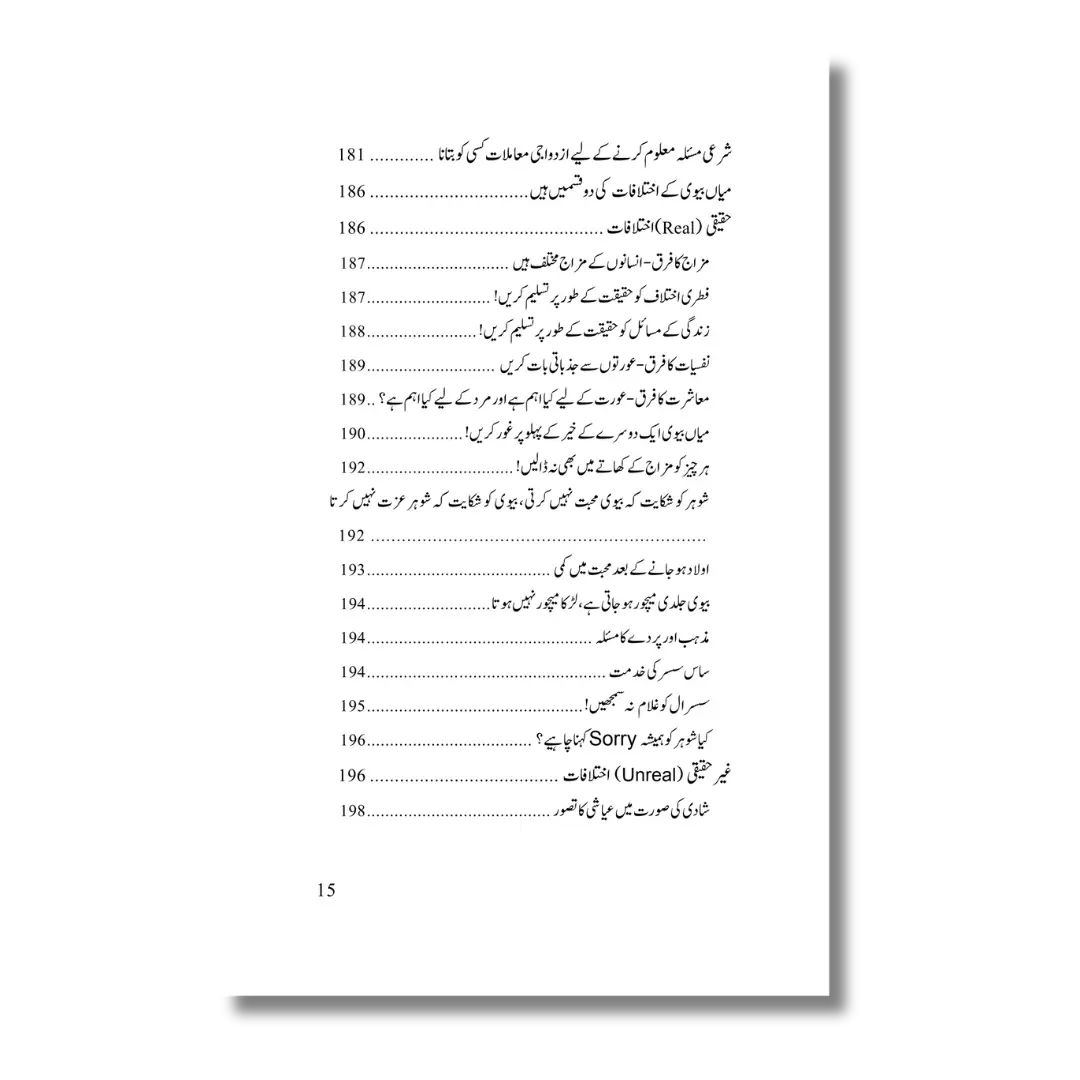 شرعی مسئلہ معلوم کرنے کے لیے ازدواجی معاملات کسی کو بتانا ............. 181
میاں بیوی کے اختلافات کی دو قسمیں ہیں................................ 186
حقیقی (Real) اختلافات ............................................... 186
مزاج کا فرق-انسانوں کے مزاج مختلف ہیں ............................... 187
فطری اختلاف کو حقیقت کے طور پر تسلیم کریں! ........................... 187
زندگی کے مسائل کو حقیقت کے طور پر تسلیم کریں!........................ 188
نفسیات کا فرق-عورتوں سے جذباتی بات کریں ............................ 189
معاشرت کا فرق-عورت کے لیے کیا اہم ہے اور مرد کے لیے کیا اہم ہے؟ .. 189
میاں بیوی ایک دوسرے کے خیر کے پہلو پر غور کریں!..................... 190
ہر چیز کو مزاج کے کھاتے میں بھی نہ ڈالیں!................................ 192
شوہر کو شکایت کہ بیوی محبت نہیں کرتی، بیوی کو شکایت کہ شوہر عزت نہیں کرتا
................................................................. 192
اولاد ہو جانے کے بعد محبت میں کمی ........................................ 193
بیوی جلدی میچور ہو جاتی ہے، لڑکا میچور نہیں ہوتا........................... 194
مذہب اور پردے کا مسئلہ ................................................. 194
ساس سسر کی خدمت .................................................... 194
سسرال کو غلام نہ سمجھیں!............................................... 195
کیا شوہر کو ہمیشہ Sorry کہنا چاہیے؟ .................................... 196
غیر حقیقی (Unreal) اختلافات ...................................... 196
شادی کی صورت میں عیاشی کا تصور ........................................ 198
15